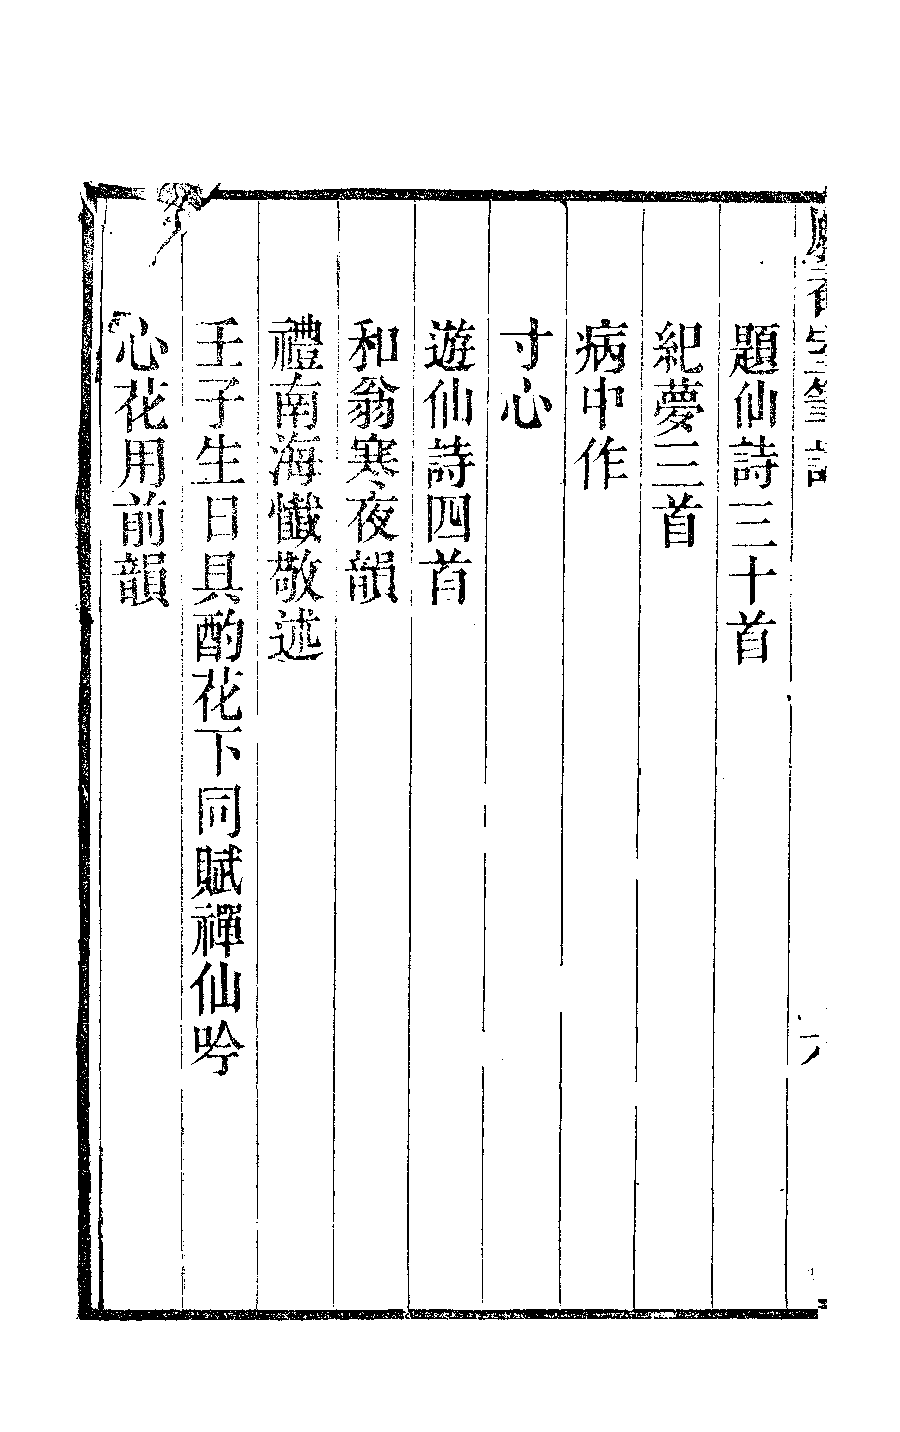 題仙詩三十首
紀夢三首
病中作
寸心
遊仙詩四首
和翁寒夜韻
禮南海懺敬述
壬子生日具酌花下同賦禪仙吟
心花用前韻